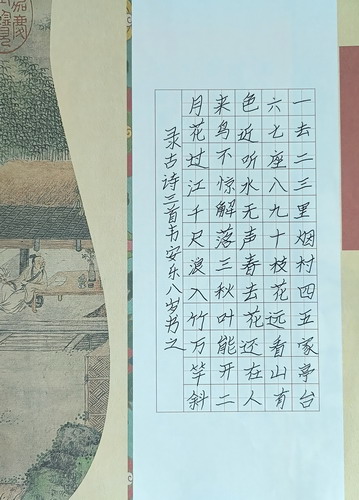 一去二三里烟村四五家亭台
六七座八九十枝花远看山有
色近听水无声春去花还在人
来鸟不惊解落三秋叶能开二
月花过江千尺浪入竹万竿斜
录古诗三首韦安乐八岁书之